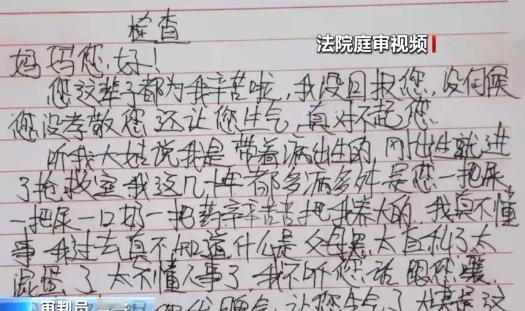 检查
法院庭审视频
妈妈您好！
您这辈子都为我辛苦啦，我没回报您，没伺候
您没孝敬您还让您生气，真对不起您
听我大姑说我是带着病出生的，刚出生就进
了抢救室我这几十年都多病多灾是您一把屎
一把尿一口奶一把药辛辛苦苦把我养大的，我真不懂
事我过去真不知道什么是父母恩太自私了太
混蛋了太不懂人事了，我不听您话跟您
审判员
脾气，让您生气了